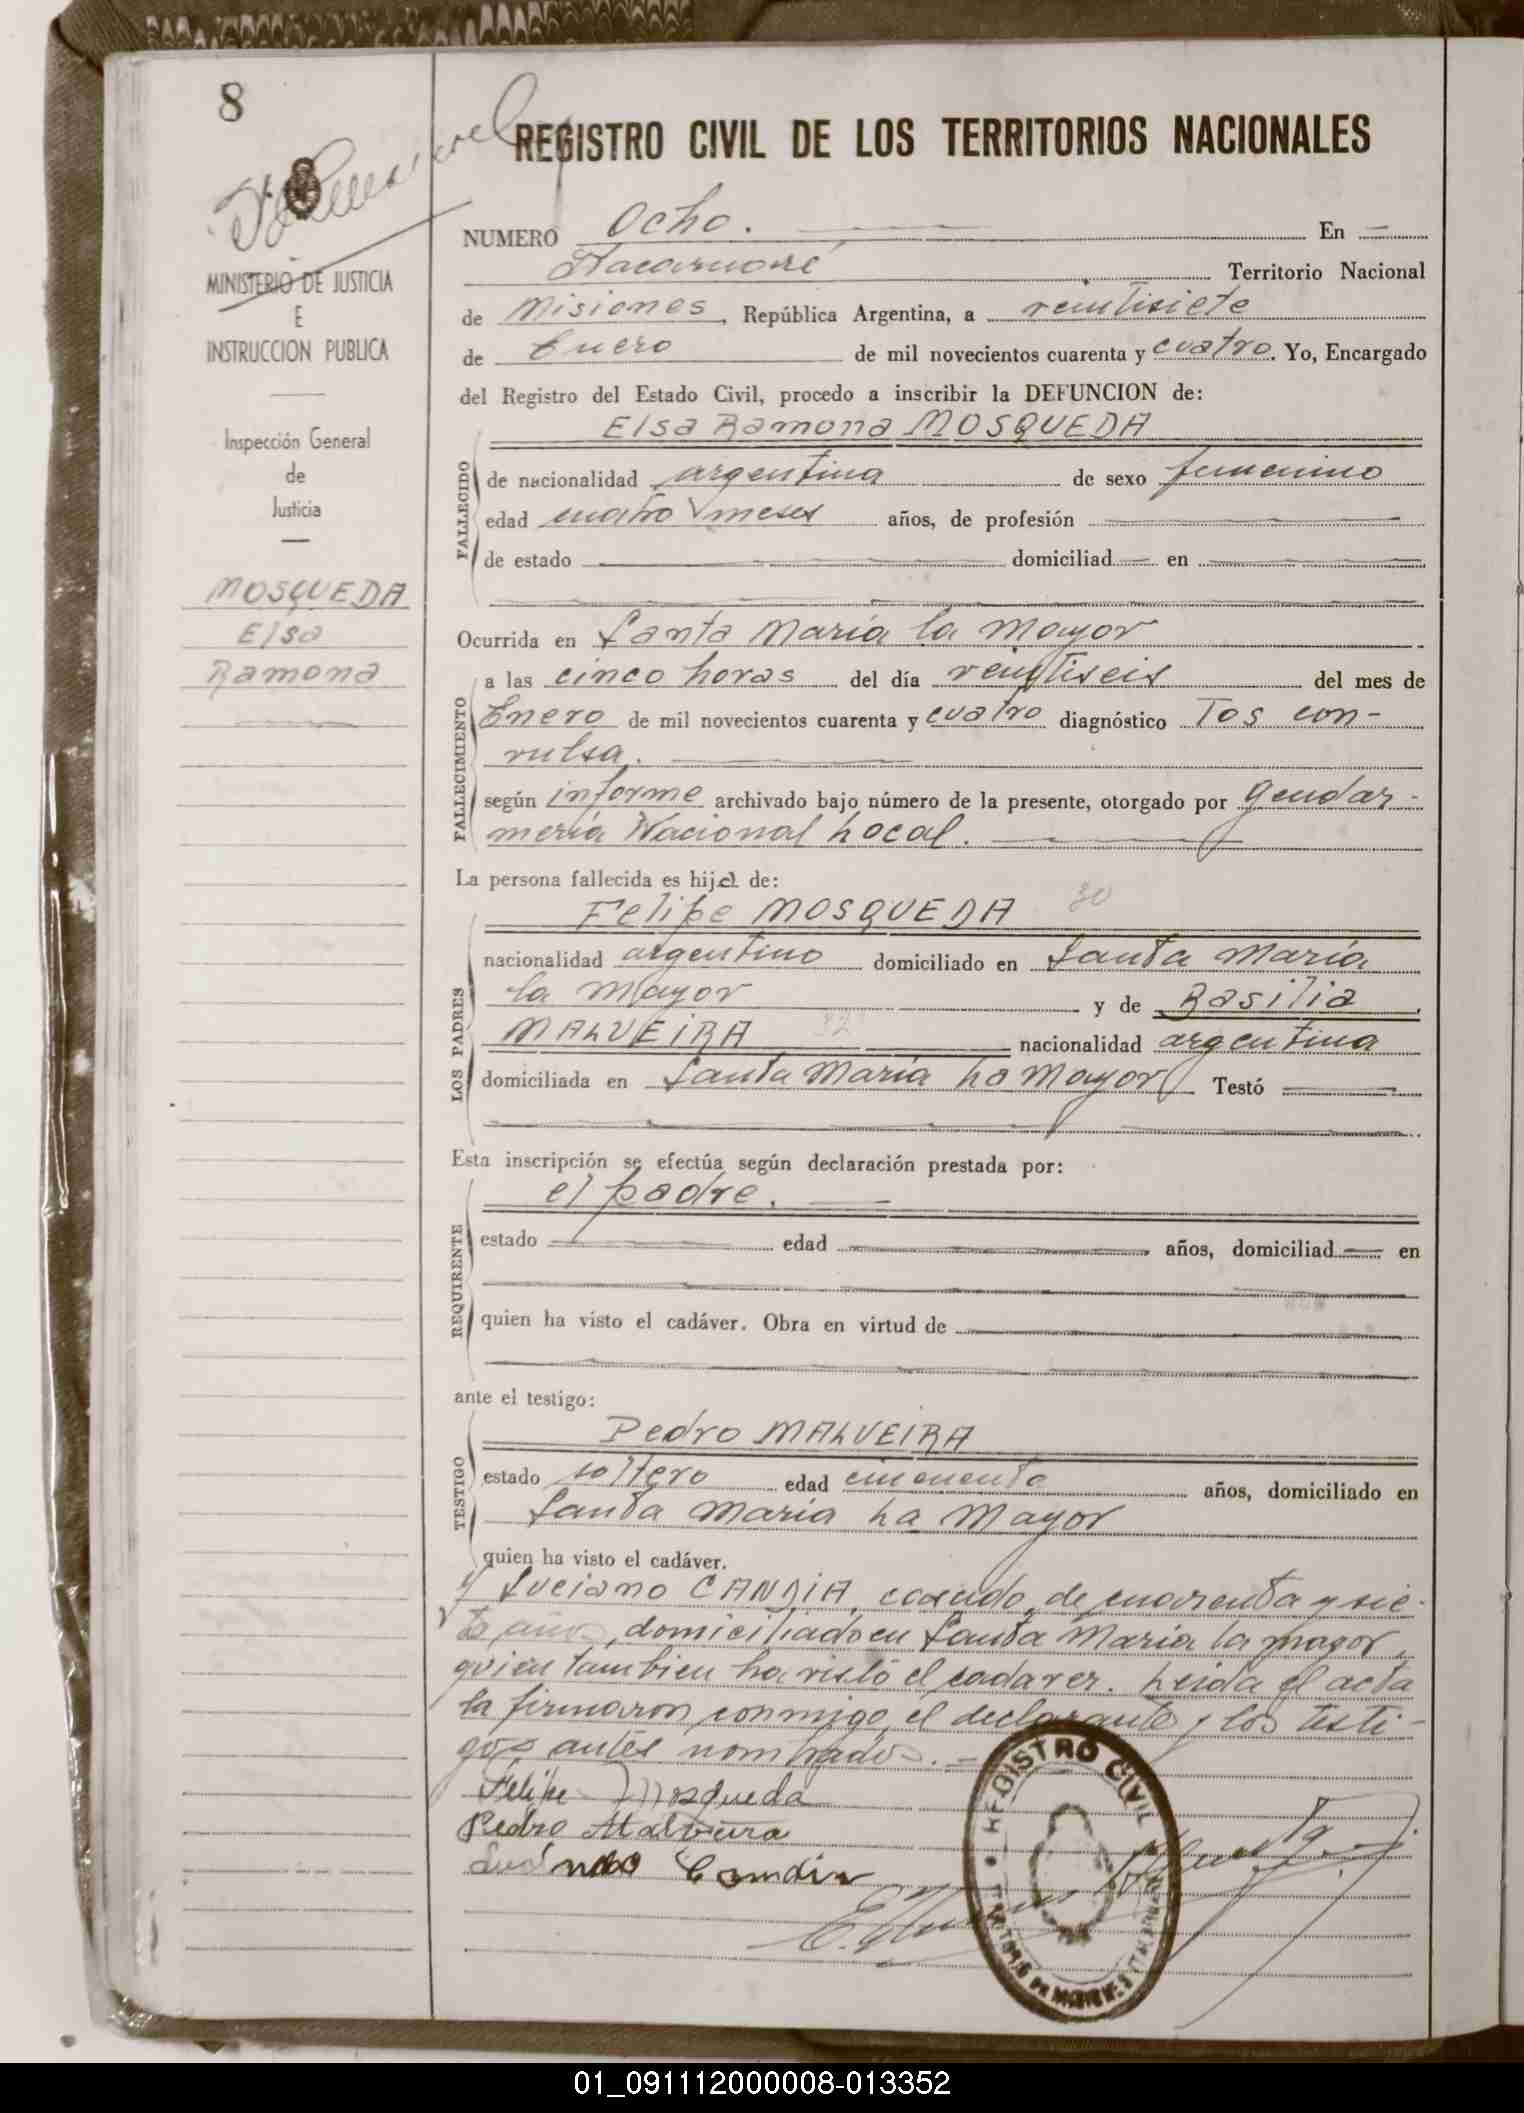 8
REGISTRO CIVIL DE LOS TERRITORIOS NACIONALES
MINISTERIO DE JUSTICIA
E
INSTRUCCION PUBLICA
Inspección General
de
Justicia
MOSQUEDA
Elsa
Ramona
NUMERO Ocho. En
Itacaruaré Territorio Nacional
de Misiones, República Argentina, a veintisiete
de Enero de mil novecientos cuarenta y cuatro. Yo, Encargado
del Registro del Estado Civil, procedo a inscribir la DEFUNCION de:
FALLECIDO
Elsa Ramona MOSQUEDA
de nacionalidad argentina de sexo femenino
edad cuatro meses años, de profesión
de estado domiciliad en
Ocurrida en Santa María la Mayor
FALLECIMIENTO
a las cinco horas del día veintiseis del mes de
Enero de mil novecientos cuarenta y cuatro diagnóstico Tos con-
vulsa.
según informe archivado bajo número de la presente, otorgado por gendar-
mería Nacional Local.
La persona fallecida es hija de:
LOS PADRES
Felipe MOSQUEDA 30
nacionalidad argentino domiciliado en Santa María
la Mayor y de Basilia
MALVEIRA 32 nacionalidad argentina
domiciliada en Santa María La Mayor Testó
Esta inscripción se efectúa según declaración prestada por:
REQUIRENTE
el padre.
estado edad años, domiciliad en
quien ha visto el cadáver. Obra en virtud de
ante el testigo:
TESTIGO
Pedro MALVEIRA
estado soltero edad cincuenta años, domiciliado en
Santa María La Mayor
quien ha visto el cadáver.
y Luciano CANDIA, casado, de cuarenta y sie-
te años, domiciliado en Santa María la mayor,
quien tambien ha visto el cadaver. Leida el acta
la firmaron conmigo, el declarante y los testi-
gos antes nombrados.
Felipe Mosqueda
Pedro Malveira
Candia
REGISTRO CIVIL
01_091112000008-013352